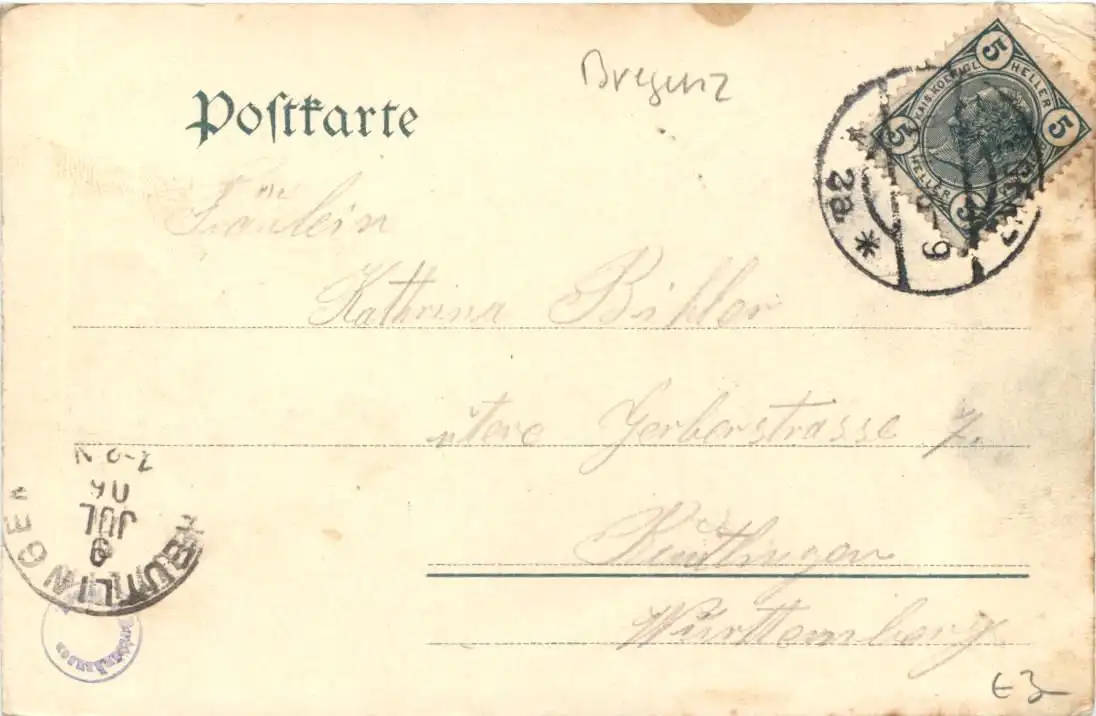 Bregenz
Postkarte
5
KAIS. KOENIGL.
HELLER
5
5
HELLER
5
2a *
9
Fräulein
Kathrina Bihler
untere Gerberstrasse 7.
Reutlingen
Württemberg
REUTLINGEN
9
JUL
06
€3